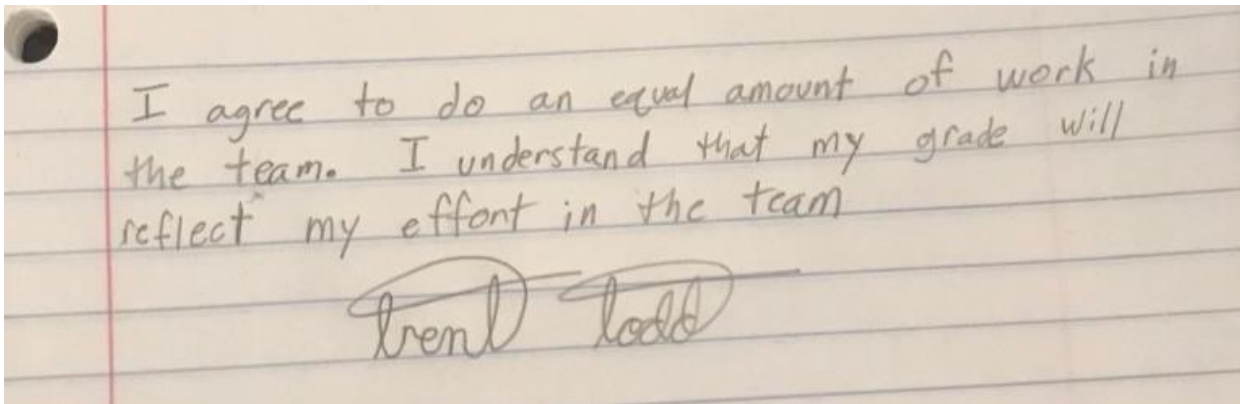 I agree to do an equal amount of work in
the team. I understand that my grade will
reflect my effont in the team
Trent Todd